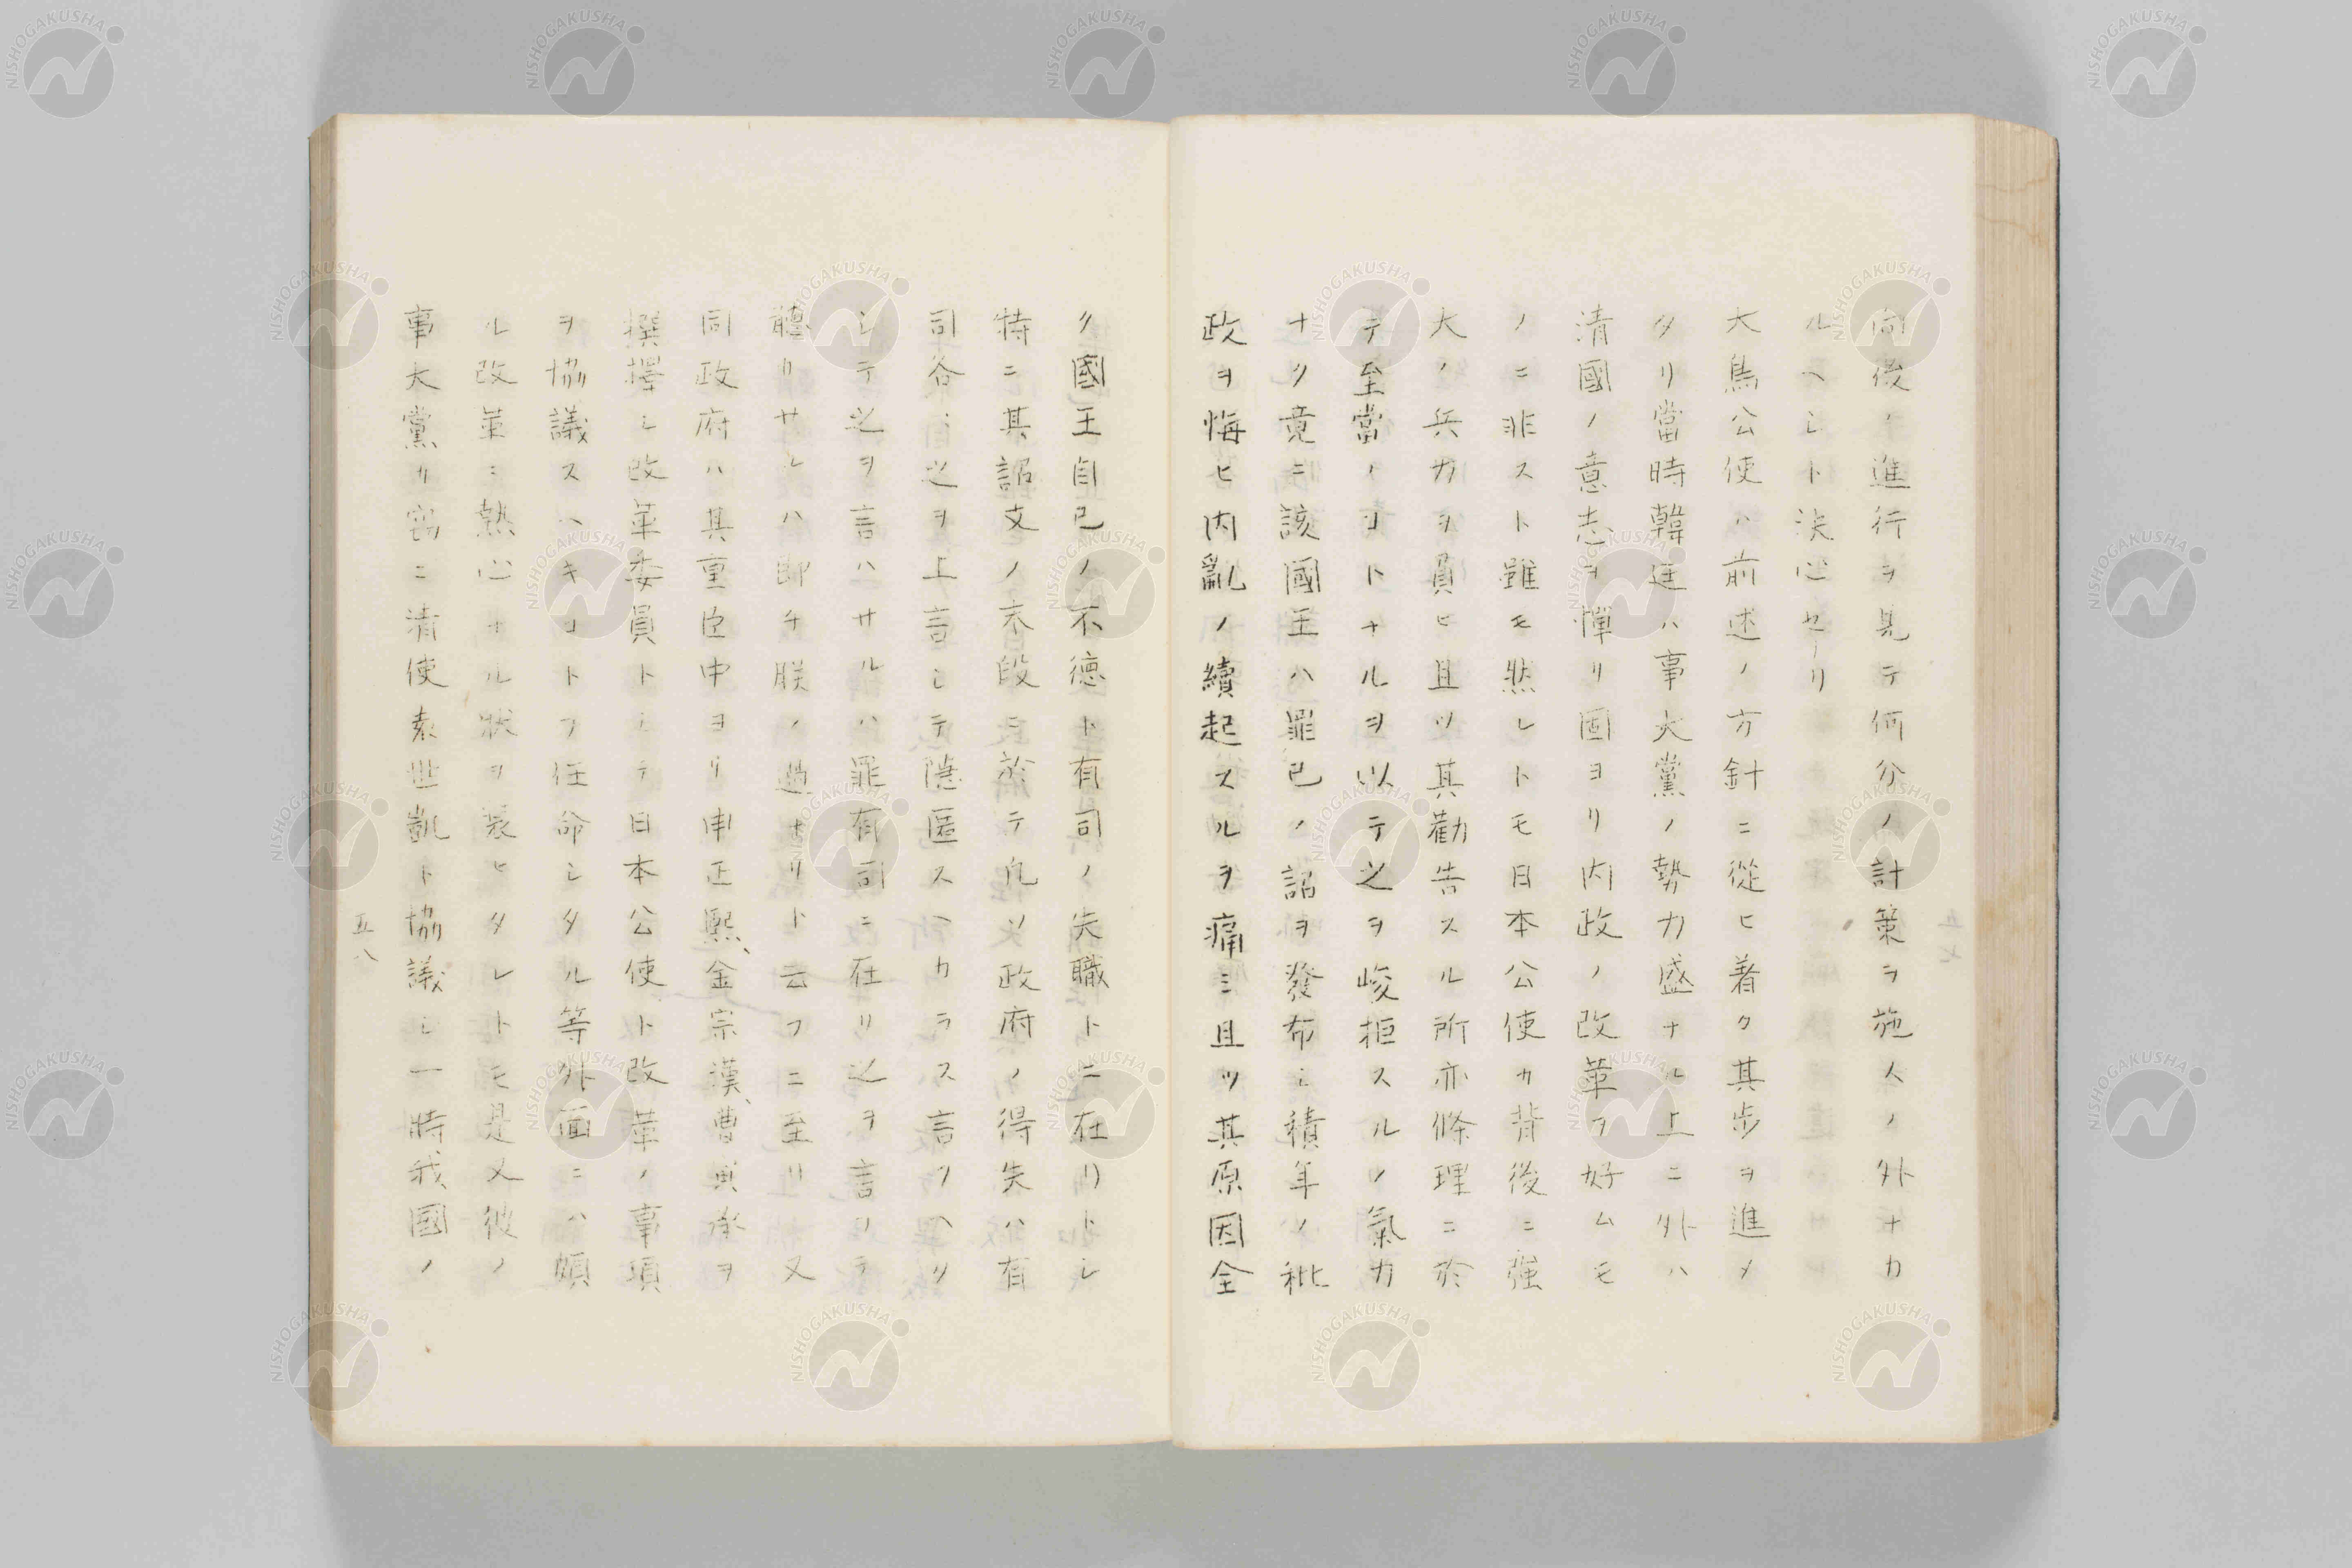 向後ノ進行ヲ見テ何分ノ計策ヲ施スノ外ナカ
ルヘシト決心セリ
大鳥公使ハ前述ノ方針ニ從ヒ着々其歩ヲ進メ
タリ當時韓廷ハ事大黨ノ勢力盛ナル上ニ外ハ
清國ノ意志ヲ憚リ固ヨリ内政ノ改革ヲ好ムモ
ノニ非スト雖モ然レトモ日本公使カ背後ニ強
大ノ兵力ヲ負ヒ且ツ其勸告スル所亦條理ニ於
テ至當ノコトナルヲ以テ之ヲ峻拒スルノ氣力
ナク竟ニ該國王ハ罪己ノ詔ヲ發布シ積年ノ秕
政ヲ悔ヒ内亂ノ續起スルヲ痛ミ且ツ其原因全
ク國王自己ノ不德ト有司ノ失職トニ在リトシ
特ニ其詔文ノ末段ニ於テ凡ソ政府ノ得失ハ有
司各、之ヲ上言シテ隱匿スヘカラス言フヘク
シテ之ヲ言ハサルハ罪有司ニ在リ之ヲ言フテ
聽カサレハ即チ朕ノ過ナリト云フニ至リ又
同政府ハ其重臣中ヨリ申正熙、金宗漢、曹寅承ヲ
撰擇シ改革委員トシテ日本公使ト改革ノ事項
ヲ協議スヘキコトヲ任命シタル等外面ニハ頗
ル改革ニ熱心ナル狀ヲ裝ヒタレトモ是又彼ノ
事大黨カ窃ニ清使袁世凱ト協議シ一時我國ノ
五七
五八
NISHOGAKUSHA